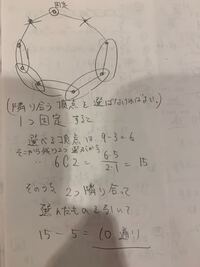 固定
(隣り合う頂点を選ばなければよい.)
1つ固定すると
選べる頂点は 9-3=6
そこから残り2つ選ぶから
6C2 = 6・5 / 2・1 = 15
そのうち 2つ隣り合って
選んだものを引いて
15 - 5 = 10 通り